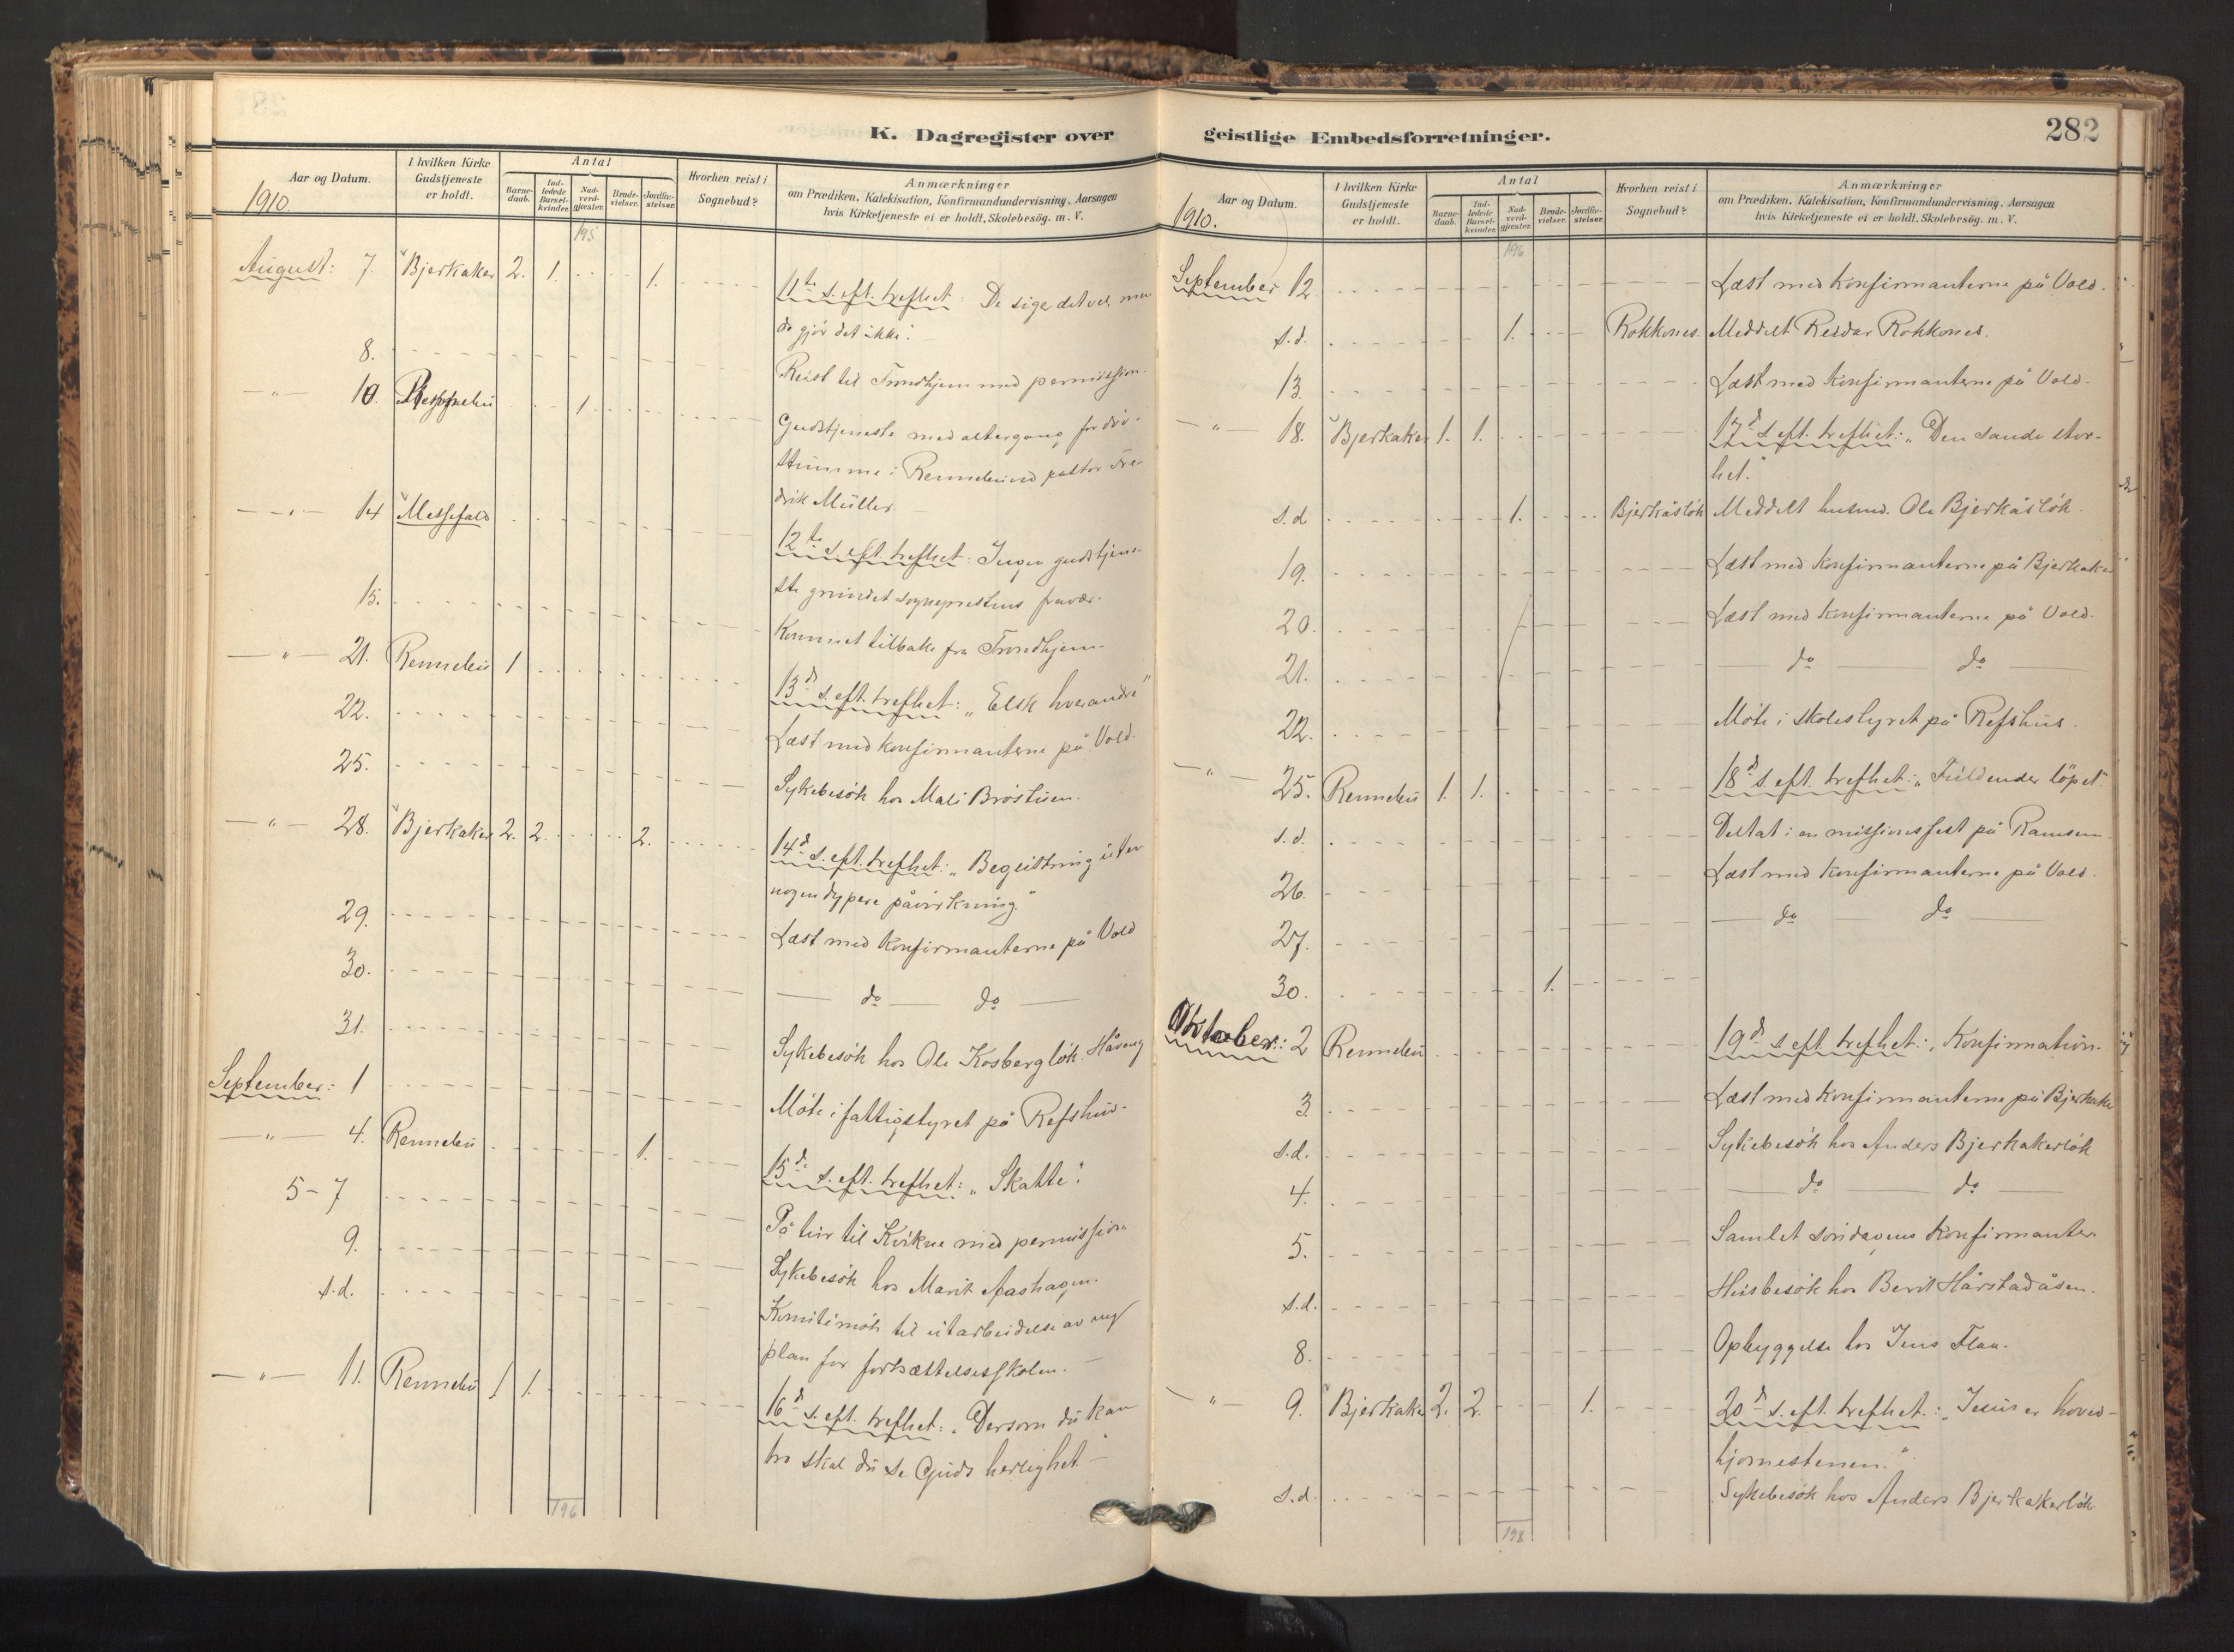 K. Dagregister over
Aar og Datum.
I hvilken Kirke
Gudstjeneste
er holdt.
Antal
Barne-
daab.
Ind-
ledede
Barsel-
kvinder.
Nad-
verd-
gjester.
Brude-
vielser.
Jordfæ-
stelser.
Hvorhen reist i
Sognebud?
Anmærkninger
om Prædiken, Katekisation, Konfirmandundervisning. Aarsagen
hvis Kirketjeneste ei er holdt, Skolebesøg. m. V.
1910
195
August: 7. Bjerkaker 2. 1. 1. 11te s. eft. trefhet: De siger det vel, men
de gjør det ikke.
8. Reist til Trondhjem med permission.
10. Rennebu 1. Gudstjeneste med altergang for døv-
stumme i Rennebu ved pastor Fre-
drik Müller.
14 Messefald 12te s. eft. trefhet: Ingen gudstjene-
ste grundet sogneprestens fravær.
15. Kommet tilbake fra Trondhjem.
21. Rennebu 1 13d s. eft. trefhet: „Elsk hverandre"
22. Læst med konfirmanterne på Vold.
25. Sykebesök hos Mali Bröstuen.
28. Bjerkaker 2. 2. 2. 14d s. eft. trefhet: „Begeistring uten
nogen dypere påvirkning."
29. Læst med konfirmanterne på Vold
30. do do
31. Sykebesök hos Ole Kosberglök. Håveng
September: 1 Möte i fattigstyret på Refshus.
4. Rennebu 1. 15d s. eft. trefhet: „Skatte".
5-7 På tur til Kvikne med permission
9. Sykebesök hos Marit Aashagen.
s.d. Komitémöte til utarbeidelse av ny
plan for fortsættelsesskolen.
11. Rennebu 1 1. 16d s. eft. trefhet: „Dersom du kan
tro skal du se Guds herlighet"
196
geistlige Embedsforretninger.
282
Aar og Datum.
I hvilken Kirke
Gudstjeneste
er holdt.
Antal
Barne-
daab.
Ind-
ledede
Barsel-
kvinder.
Nad-
verd-
gjester.
Brude-
vielser.
Jordfæ-
stelser.
Hvorhen reist i
Sognebud?
Anmærkninger
om Prædiken, Katekisation, Konfirmandundervisning. Aarsagen
hvis Kirketjeneste ei er holdt, Skolebesøg. m. V.
1910.
196
September 12. Læst med konfirmanterne på Vold.
s.d. 1. Rokkones. Meddelt Reidar Rokkones.
13. Læst med konfirmanterne på Vold.
18. Bjerkaker 1. 1. 17d s. eft. trefhet: „Den sande stor-
het."
s.d. 1. Bjerkåslök Meddelt husmd. Ole Bjerkåslök.
19. Læst med konfirmanterne på Bjerkaker
20. Læst med konfirmanterne på Vold.
21. do do
22. Möte i skolestyret på Refshus.
25. Rennebu 1. 1. 18d s. eft. trefhet: „Fuldender löpet".
s.d. Deltat i en missionsfest på Ramsem
26. Læst med konfirmanterne på Vold.
27. do do
30. 1.
Oktober: 2 Rennebu 19d s. eft. trefhet: Konfirmation.
3. Læst med konfirmanterne på Bjerkaker
s.d. Sykebesök hos Anders Bjerkakerlök
4. do do
5. Samlet söndagens konfirmanter.
s.d. Husbesök hos Berit Hårstadåsen.
8. Opbyggelse hos Jens Flaa.
9. Bjerkaker 2. 2. 1. 20d s. eft. trefhet.: „Jesus er hoved-
hjörnestenen."
s.d. Sykebesök hos Anders Bjerkakerlök
198